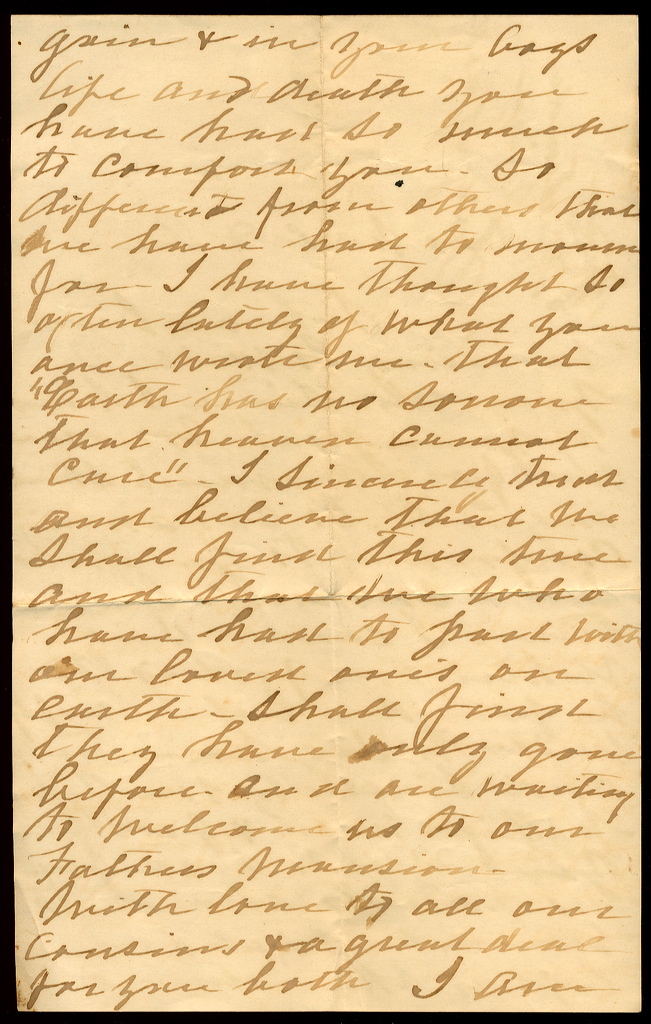 gain & in your boys
life and death you
have had so much
to comfort you - So
different from others that
we have had to mourn
for - I have thought so
often lately of what you
once wrote me - that
"Earth has no sorrow
that heaven cannot
cure" - I sincerely trust
and believe that we
shall find this true
and that we who
have had to part with
our loved ones on
earth - shall find
they have only gone
before - and are waiting
to welcome us to our
Fathers Mansion -
With love to all our
Cousins & a great deal
for you both I am